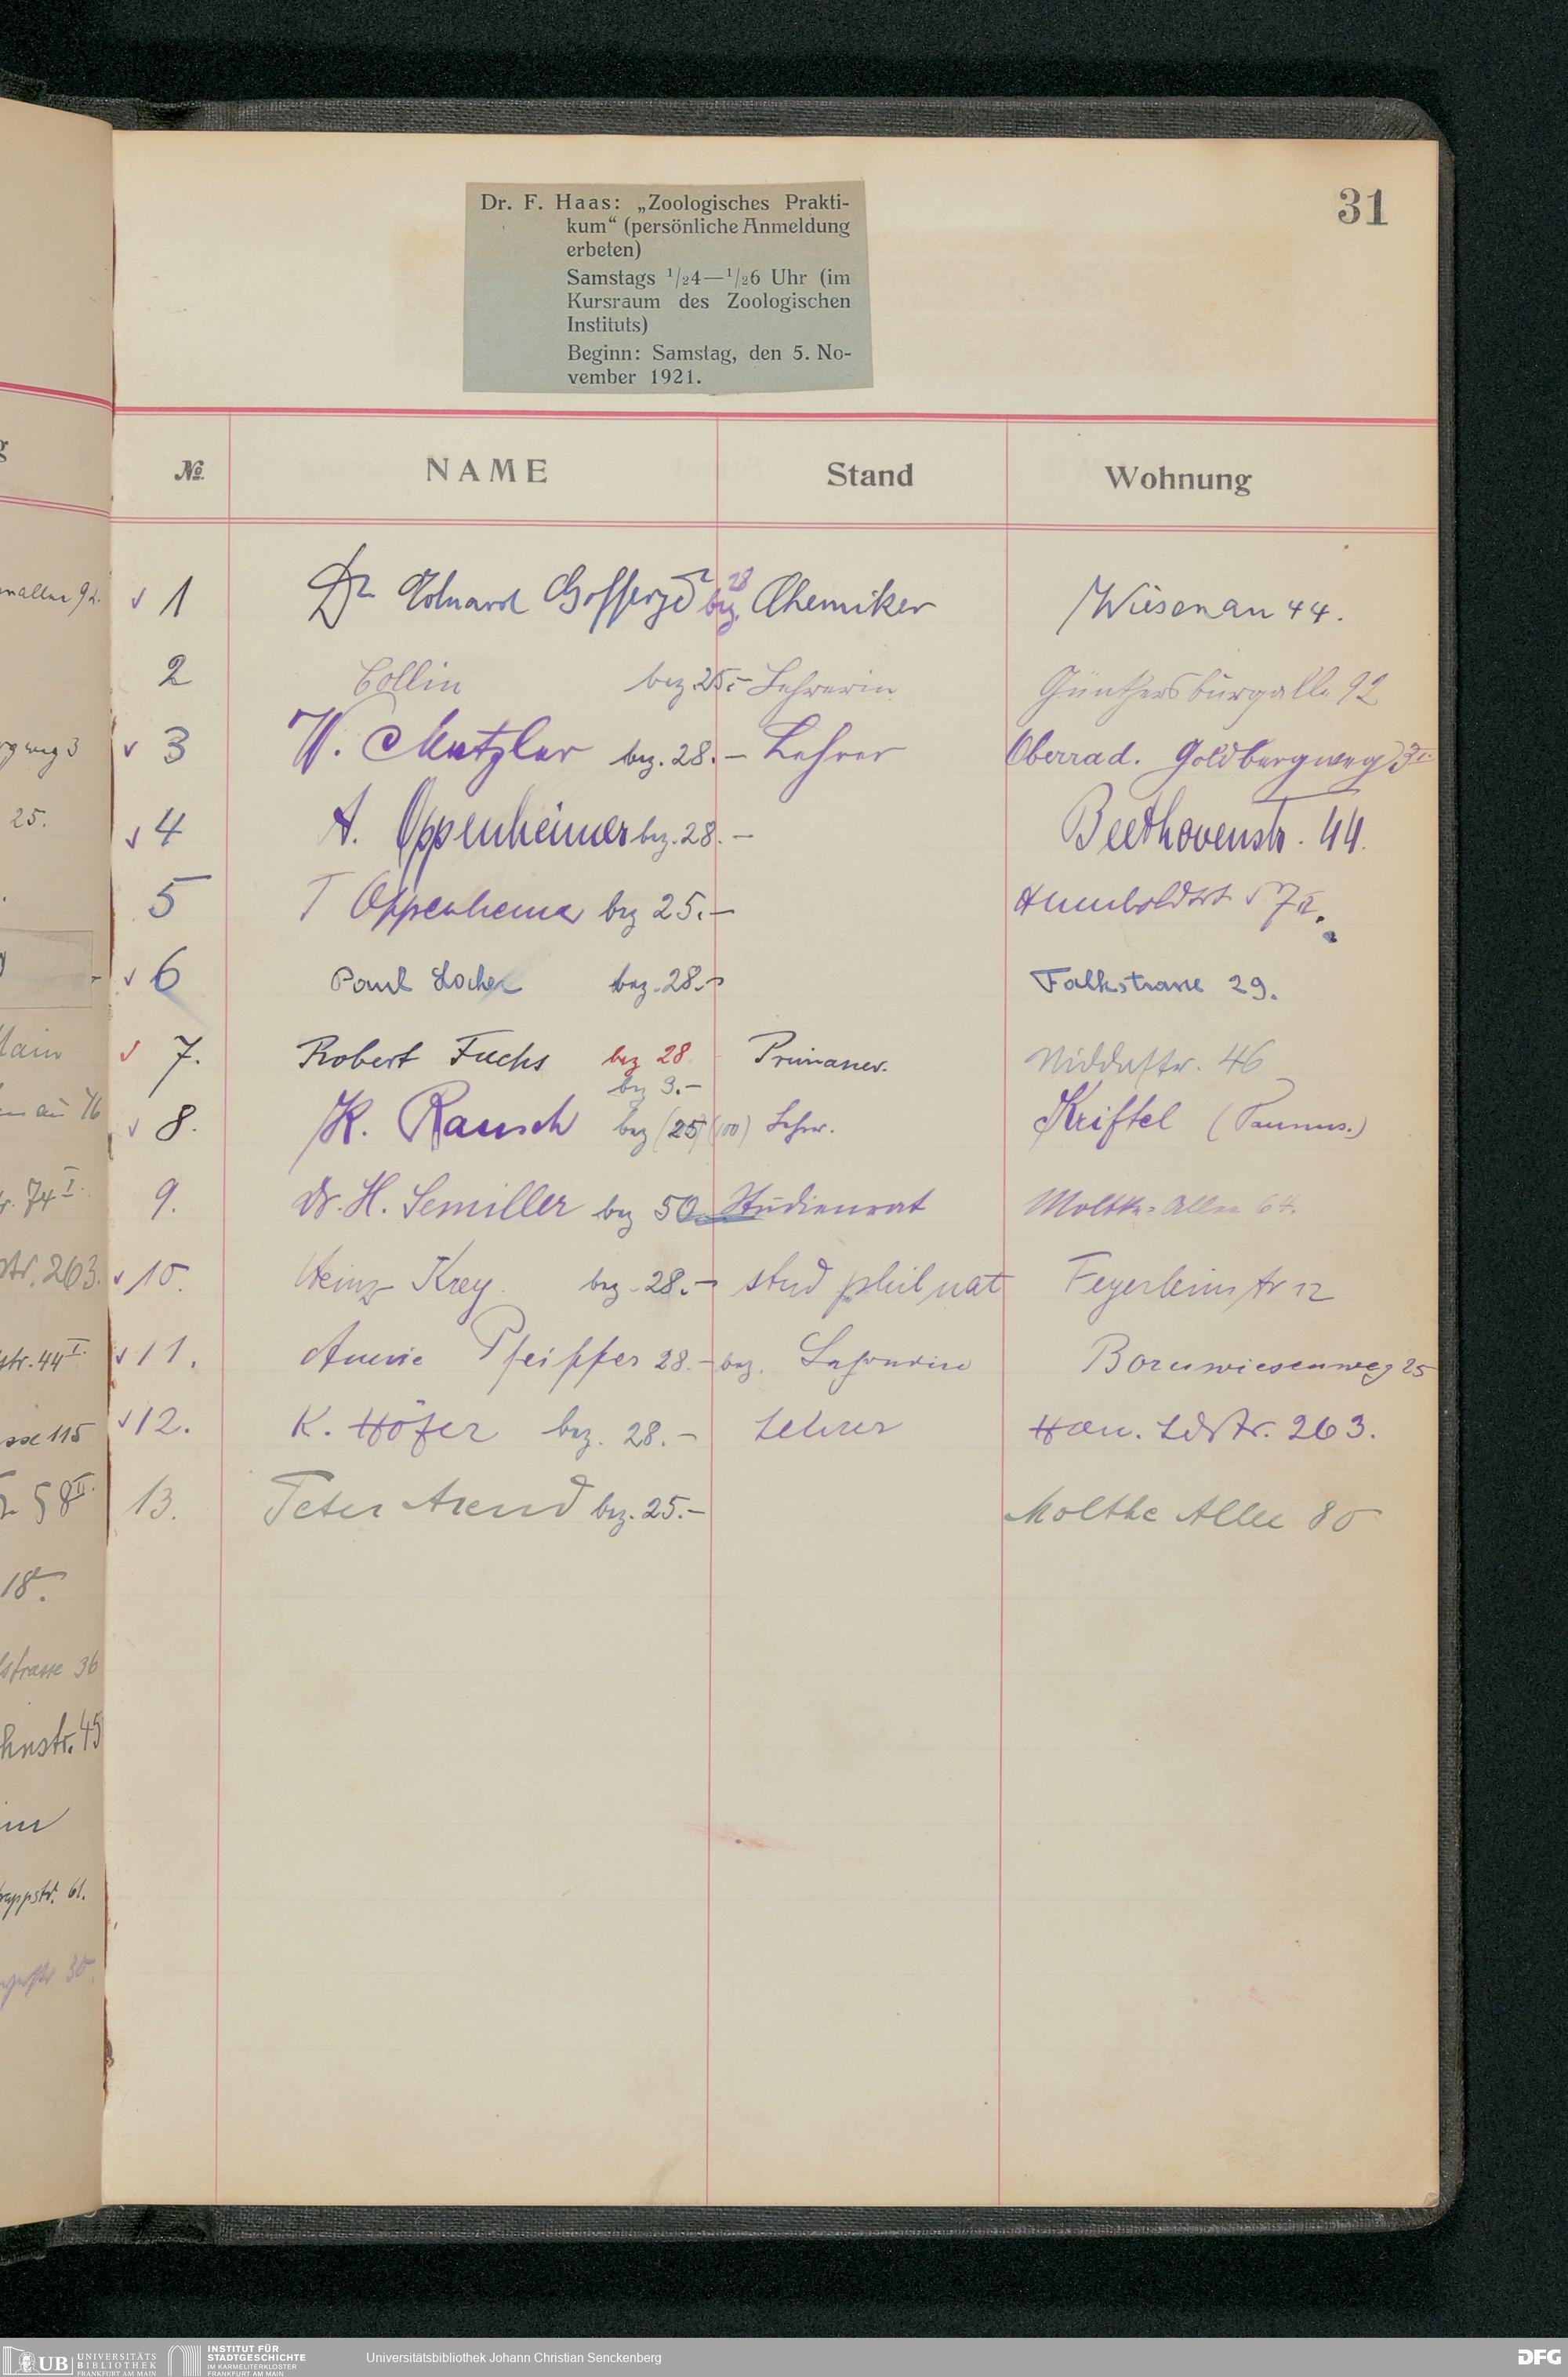 31
Dr. F. Haas: „Zoologisches Prakti-
kum“ (persönliche Anmeldung
erbeten)
Samstags 1/24—1/26 Uhr (im
Kursraum des Zoologischen
Instituts)
Beginn: Samstag, den 5. No-
vember 1921.
№ NAME Stand Wohnung
1 Dr Eduard bez. 28 Chemiker Wiesenau 44.
2 Collin bez. 25.- Lehrerin Günthersburgalle 92
3 W. Metzler bez. 28.- Lehrer Oberrad. Goldbergweg 3 I.
4 A. Oppenheimer bez. 28.- Beethovenstr. 44.
5 T Oppenheimer bez 25.- 
6 Paul Locher bez. 28.- Falkstrasse 29.
7. Robert Fuchs bez 28 Primaner. Niddastr. 46
bez 3.-
8. K. Rausch bez (25) (100) Lehr. Kriftel (Taunus.)
9. Dr. H. Semiller bez 50 Studienrat Moltke-Allee 64.
10. Heinz Krey bez. 28.- stud phil nat Feyerleinstr 12
11. Annie Pfeiffer 28.- bez. Lehrerin Bornwiesenweg 25
12. K. Höfer bez. 28.- Lehrer Han. Ldstr. 263.
13. Peter Arend bez. 25.- Moltke Allee 80
92.
weg 3
25.
Main
au 76
r. 74 I.
str. 263.
str. 44 I.
sse 115
58 II.
18.
strasse 36
hnstr. 45
uppstr. 61.
30.
UB UNIVERSITÄTS
BIBLIOTHEK
FRANKFURT AM MAIN
INSTITUT FÜR
STADTGESCHICHTE
IM KARMELITERKLOSTER
FRANKFURT AM MAIN
Universitätsbibliothek Johann Christian Senckenberg
DFG